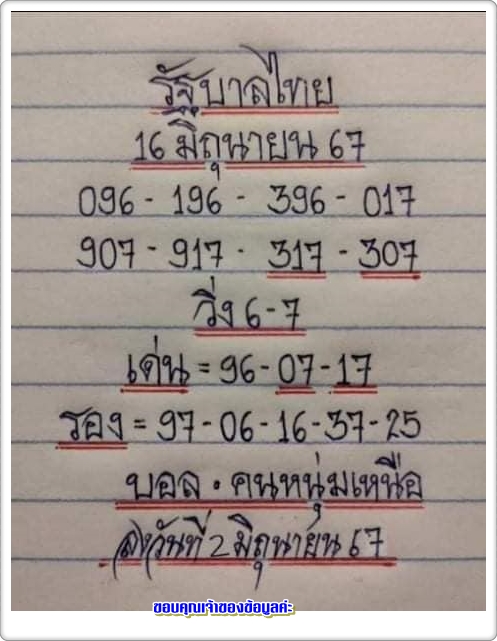 รัฐบาลไทย
16 มิถุนายน 67
096 - 196 - 396 - 017
907 - 917 - 317 - 307
วิ่ง 6 - 7
เด่น = 96 - 07 - 17
รอง = 97 - 06 - 16 - 37 - 25
บอล . คนหนุ่มเหนือ
วันที่ 2 มิถุนายน 67
ขอบคุณเจ้าของข้อมูลค่ะ